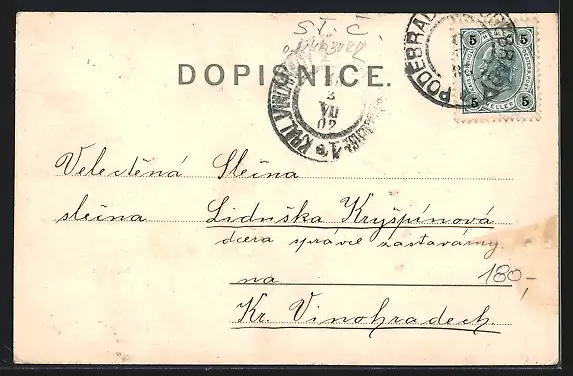 ST. C
DOPISNICE.
PODĚBRADY
5 5
5 5
HELLER
KRÁL. VINOHRADY
3
VII
02
1
Velectěná Slečna
slečna Lidruška Kryšpínová
dcera správce zastavárny
na
180,-
Kr. Vinohradech.